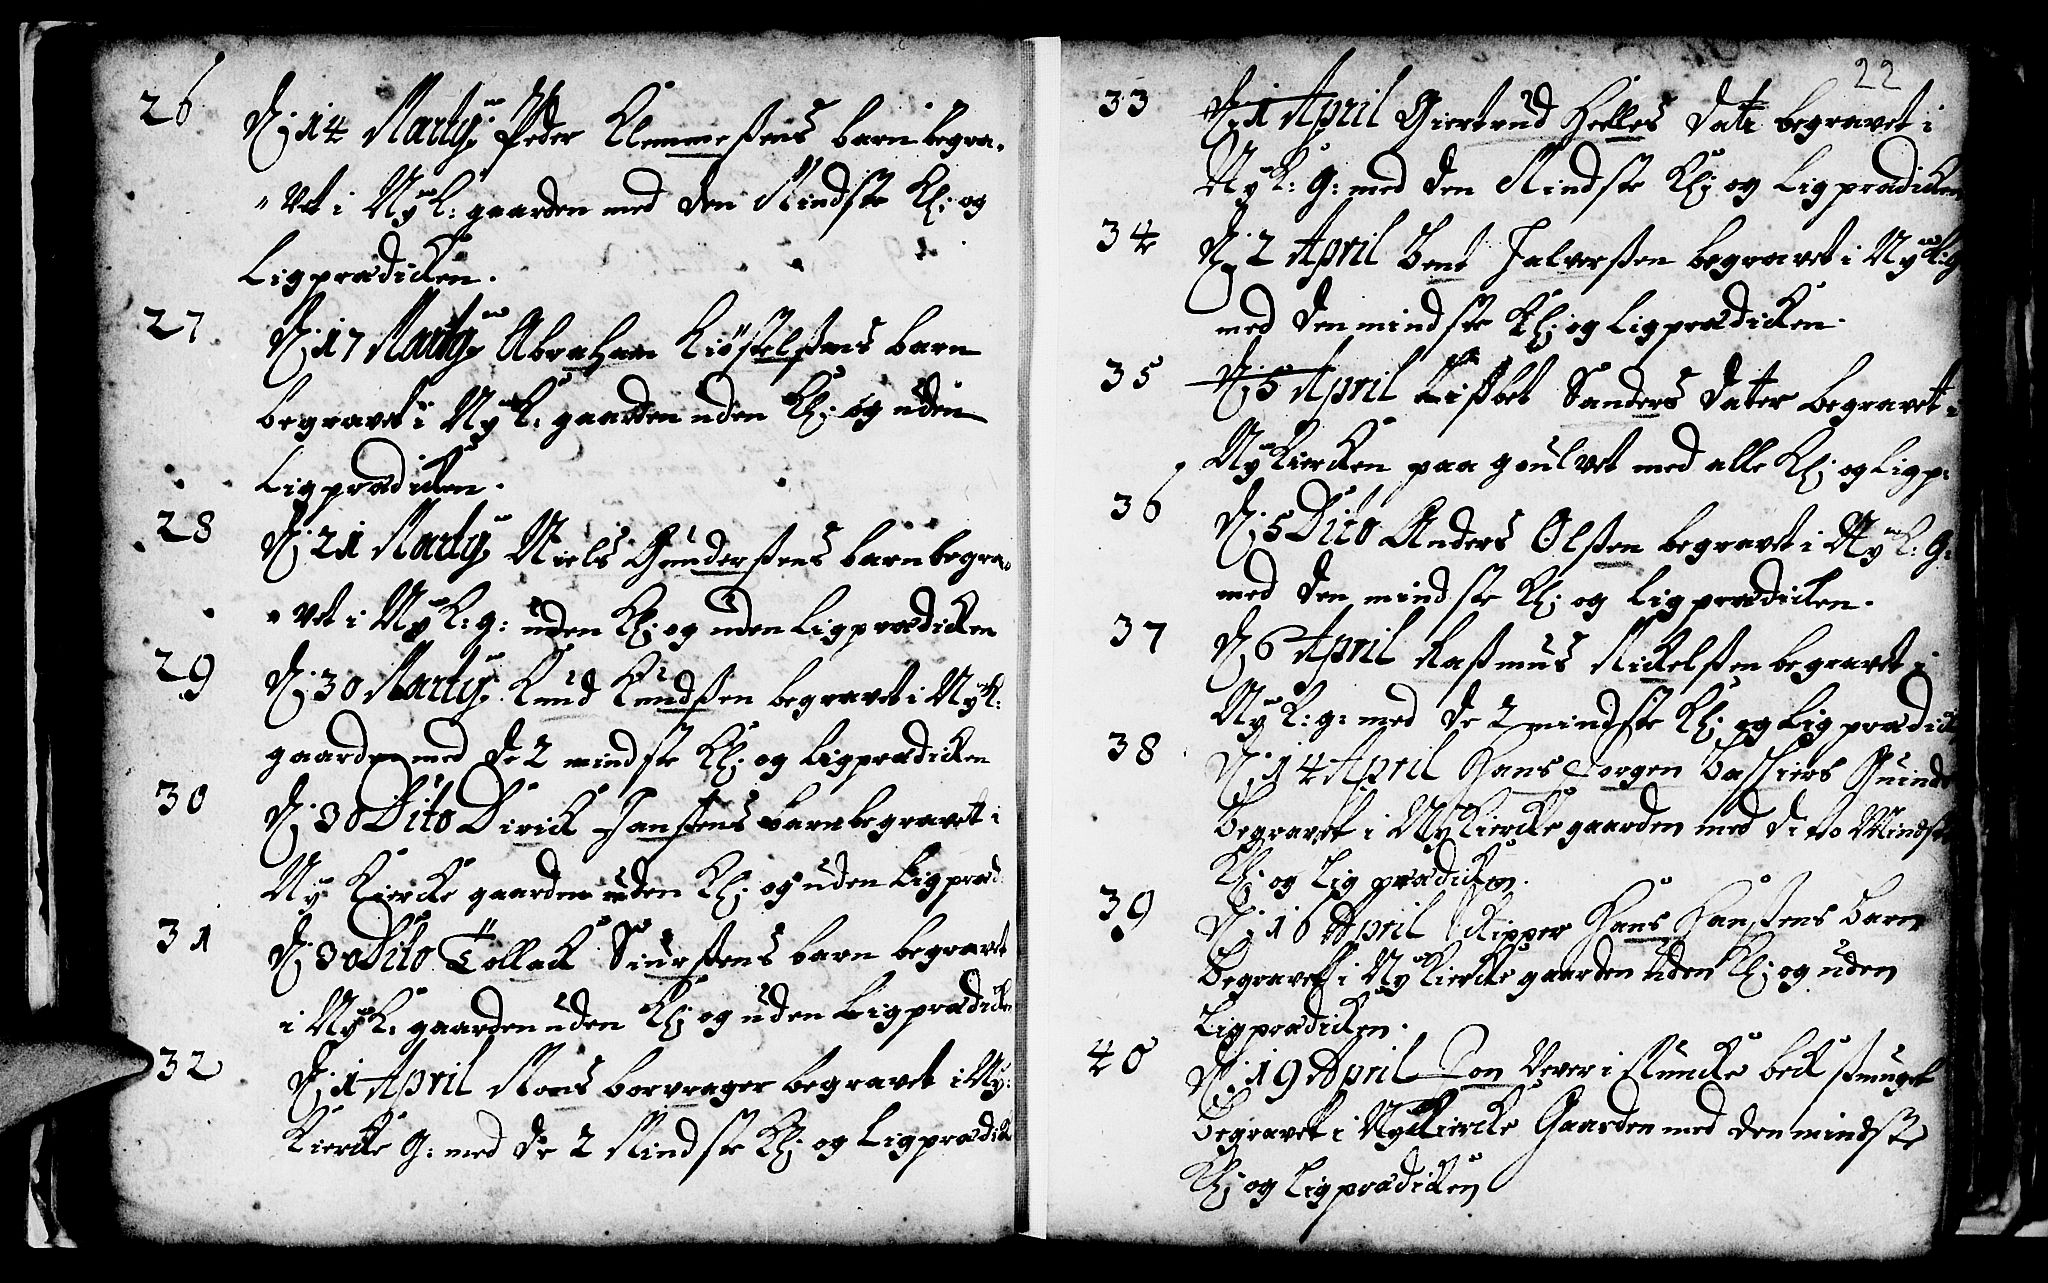 26 D. 14 Martij Peder Klemmeßens barn begra-
-vet i Ny K: gaarden med den Mindste Kl: og
Ligprædicken.
27 D. 17 Martij Abraham Kiöstelßens barn
begravet i Ny K: gaarden uden Kl: og uden
Ligprædicken.
28 D. 21 Martij Niels Gunderßens barn begra-
-vet i Ny K: g: uden Kl: og uden Ligprædicken
29 D. 30 Martij Knud Knudßen begravet i Ny K:
gaarden med de 2 mindste Kl: og Ligprædicken
30 D. 30 Dito Dirick Janßens barn begravet i
Ny Kiercke gaarden uden Kl: og uden Ligpræd
31 D. 30 Dito Tollack Siurßens barn begravet
i Ny K: gaarden uden Kl: og uden Ligprædicken
32 D. 1 April Mons borvrager begravet i Ny:
Kiercke G: med de 2 Mindste Kl: og Ligprædick
22
33 D. 1 April Giertrud Helles Datr begravet i
Ny K: G: med den Mindste Kl: og Ligprædicken
34 D. 2 April Bent Halverßen begravet i Ny K: g
med den mindste Kl: og Ligprædicken.
35 D. 5 April Lißbet Sanders Dater begravet i
Ny Kiercken paa goulvet med alle Kl: og Ligp:
36 D. 5 Dito Anders Olßen begravet i Ny K: G:
med den mindste Kl: og Ligprædicken.
37 D. 6 April Raßmus Mickelßen begravet i
Ny K: g: med de 2 mindste Kl: og Ligprædick
38 D. 14 April Hans Jørgen Quinde
begravet i Ny Kiercke gaarden med di to Mindste
Kl: og Ligprædicken.
39 D. 16 April Skipper Hans Hanßens barn
Begravet i Ny Kiercke gaarden uden Kl: og uden
Ligprædicken.
40 D. 19 April Jon Vever i Muncke beck ßmuget
begravet i Ny Kiercke Gaarden med den mindste
Kl: og Ligprædicken